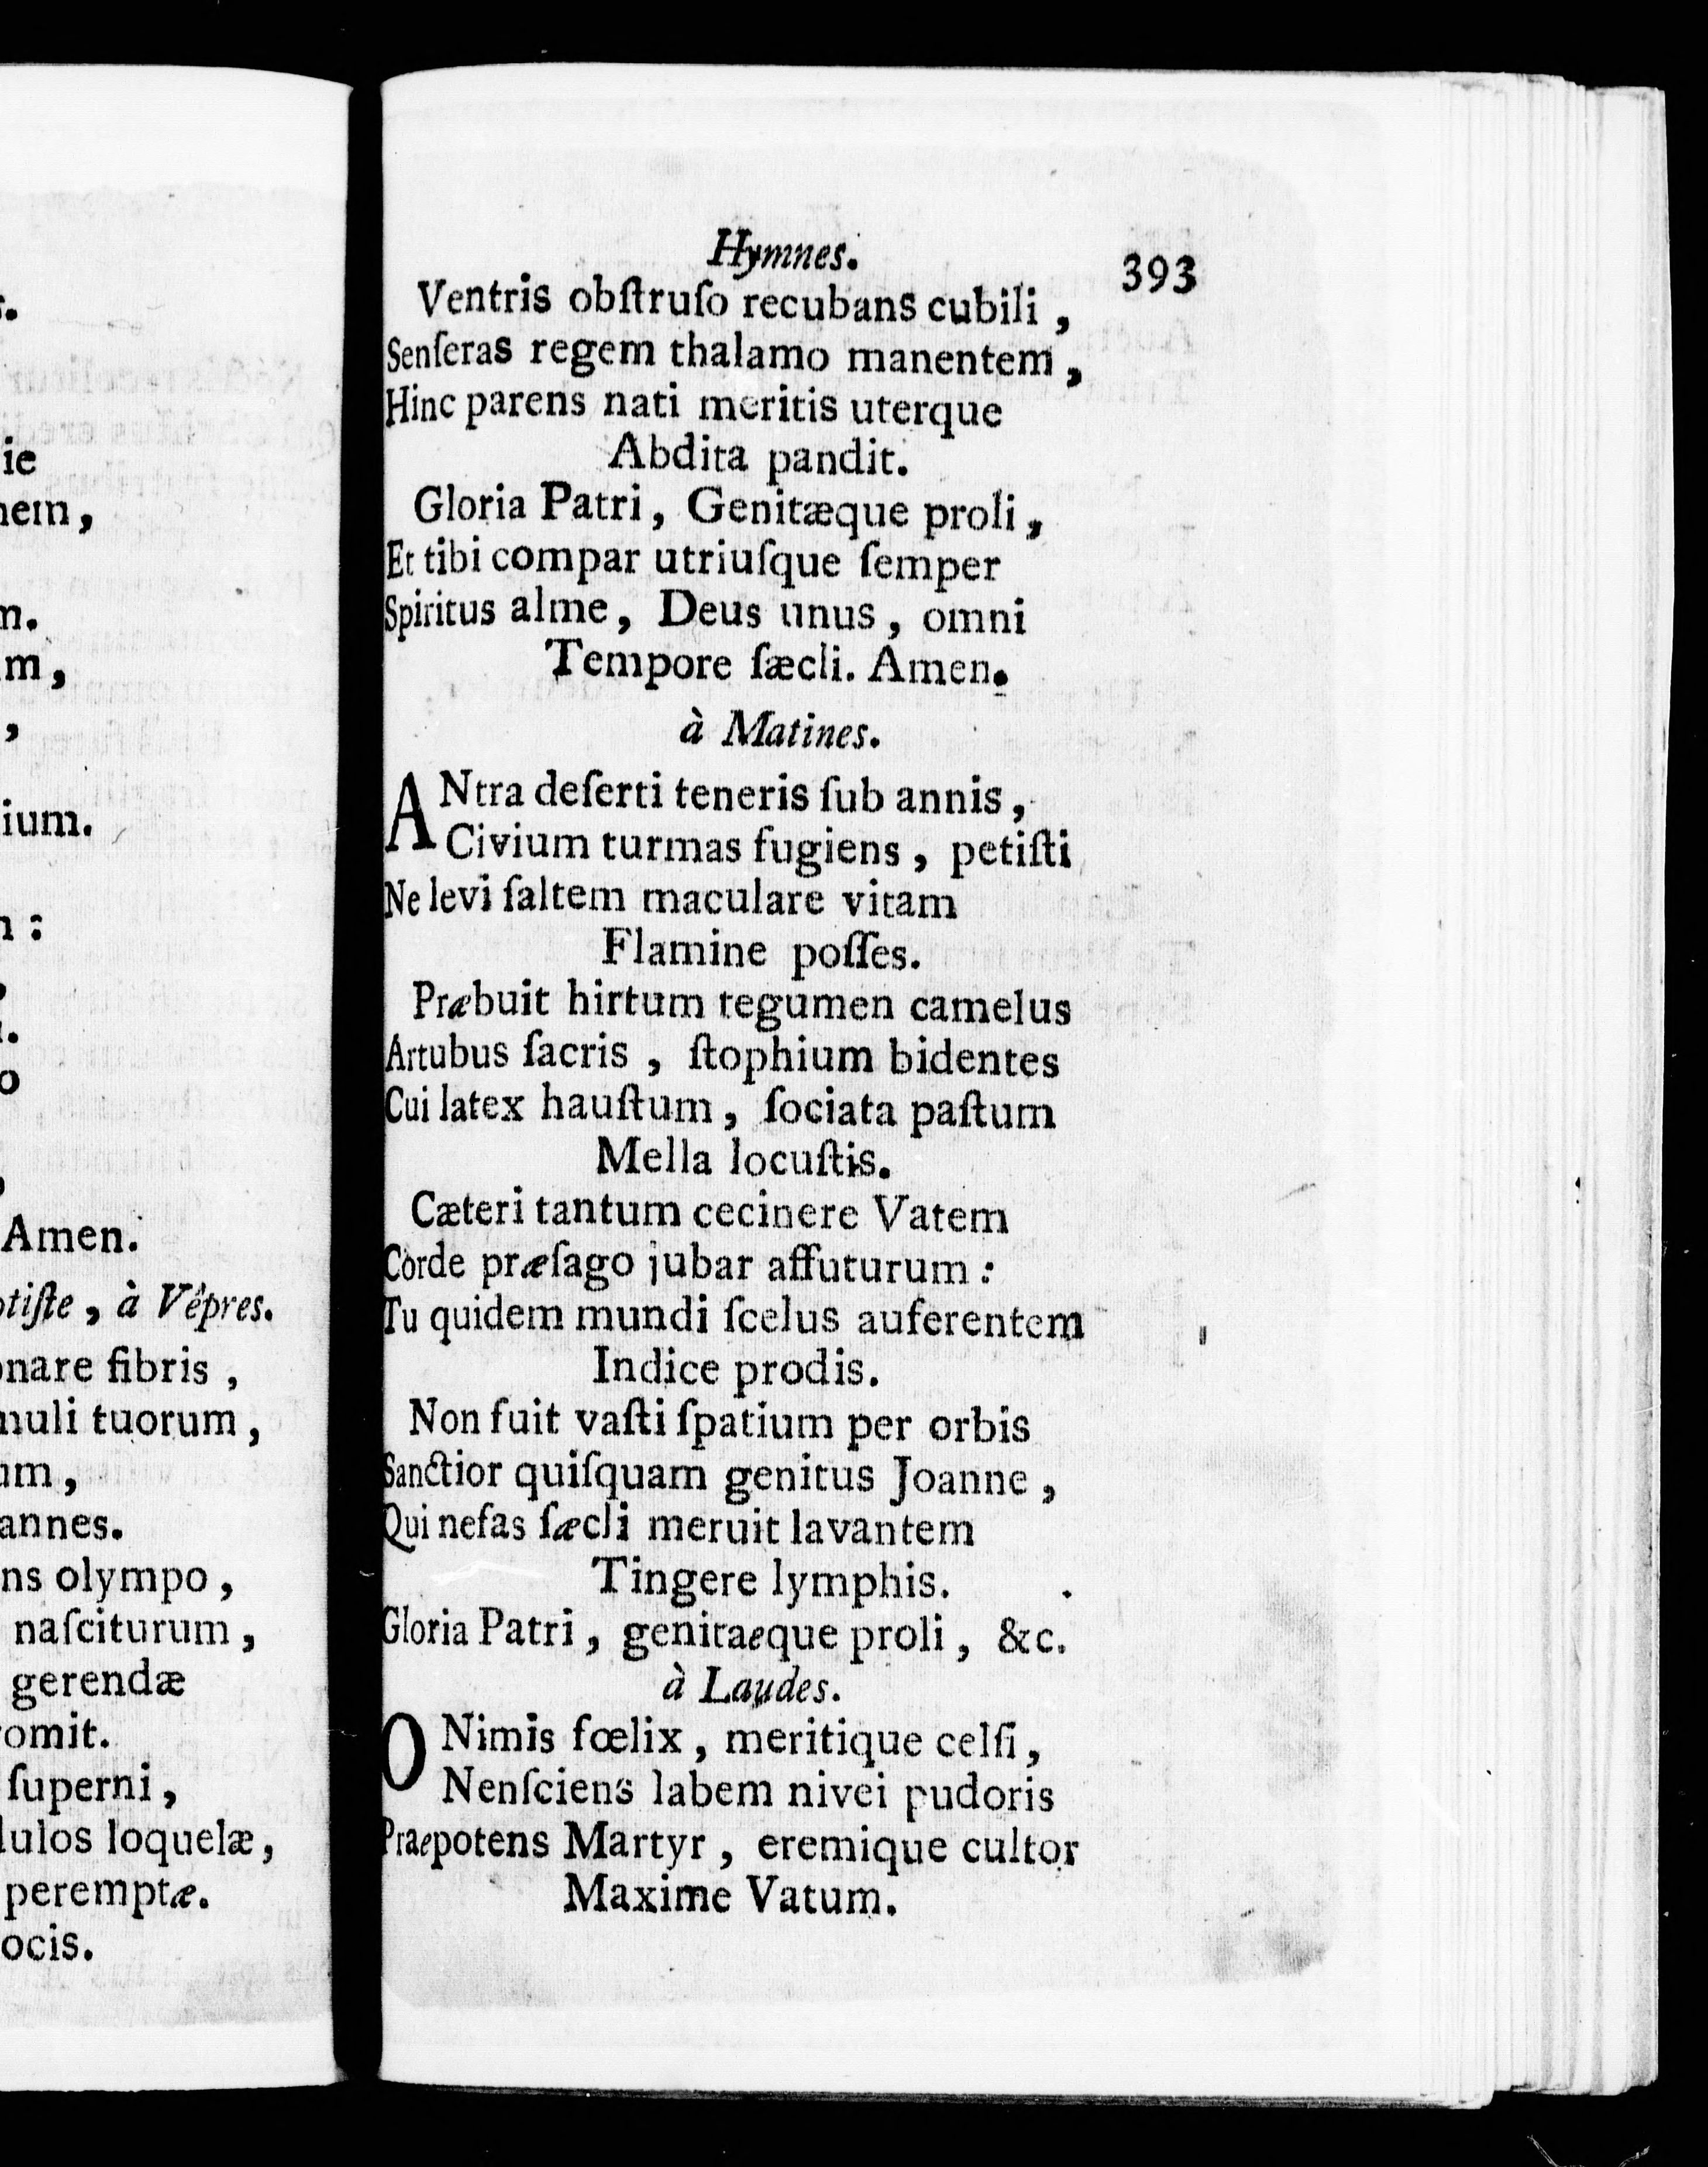 s.
ie
nem,
m.
m,
,
ium.
n:
o
Amen.
tiſte, à Vêpres.
onare fibris,
nuli tuorum,
um,
annes.
ns olympo,
naſciturum,
gerendæ
romit.
ſuperni,
dulos loquelæ,
peremptæ.
ocis.
Hymnes. 393
Ventris obſtruſo recubans cubili,
Senſeras regem thalamo manentem,
Hinc parens nati meritis uterque
Abdita pandit.
Gloria Patri, Genitæque proli,
Et tibi compar utriuſque ſemper
Spiritus alme, Deus unus, omni
Tempore ſæcli. Amen.
à Matines.
ANtra deſerti teneris ſub annis,
Civium turmas fugiens, petiſti
Ne levi ſaltem maculare vitam
Flamine poſſes.
Præbuit hirtum tegumen camelus
Artubus ſacris, ſtophium bidentes
Cui latex hauſtum, ſociata paſtum
Mella locuſtis.
Cæteri tantum cecinere Vatem
Corde præſago jubar affuturum:
Tu quidem mundi ſcelus auferentem
Indice prodis.
Non fuit vaſti ſpatium per orbis
Sanctior quiſquam genitus Joanne,
Qui nefas ſæcli meruit lavantem
Tingere lymphis.
Gloria Patri, genitaeque proli, &c.
à Laudes.
O Nimis fœlix, meritique celſi,
Nenſciens labem nivei pudoris
Praepotens Martyr, eremique cultor
Maxime Vatum.